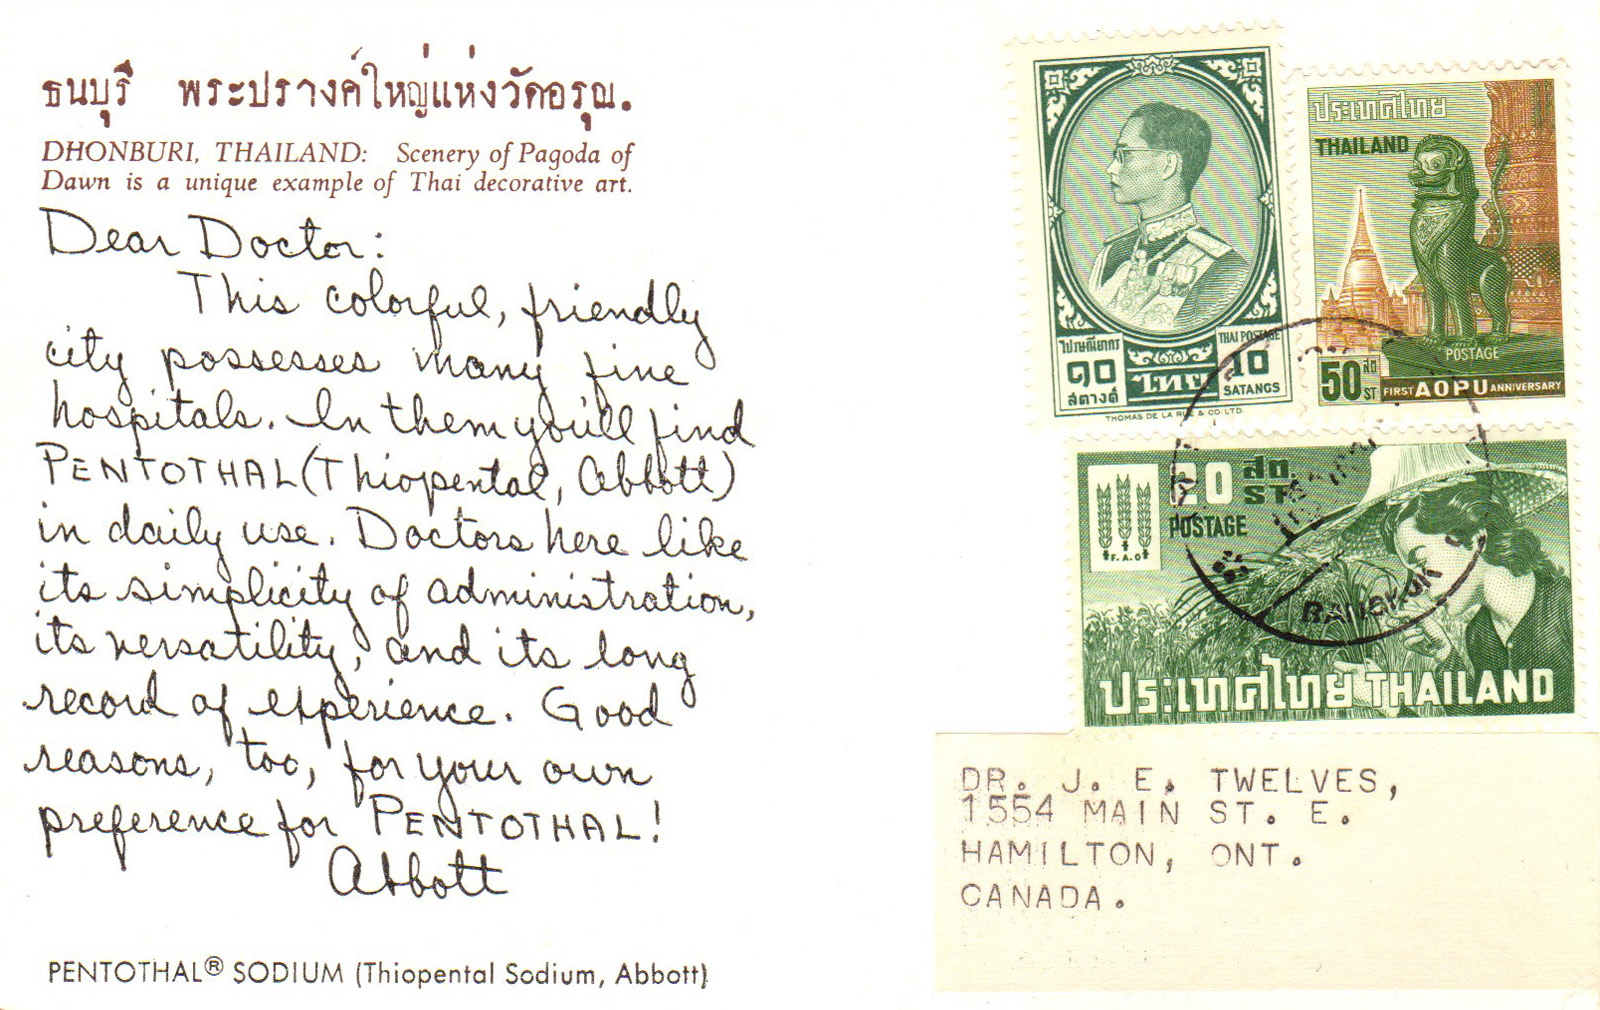 ธนบุรี พระปรางค์ใหญ่แห่งวัดอรุณ.
DHONBURI, THAILAND: Scenery of Pagoda of
Dawn is a unique example of Thai decorative art.
Dear Doctor:
This colorful, friendly
city possesses many fine
hospitals. In them you'll find
PENTOTHAL (Thiopental, Abbott)
in daily use. Doctors here like
its simplicity of administration,
its versatility, and its long
record of experience. Good
reasons, too, for your own
preference for PENTOTHAL!
Abbott
PENTOTHAL® SODIUM (Thiopental Sodium, Abbott)
ไปรษณียากร
THAI POSTAGE
๑๐
สตางค์
ไทย
10
SATANGS
THOMAS DE LA RUE & CO. LTD.
ประเทศไทย
THAILAND
POSTAGE
50 สต ST
FIRST AOPU ANNIVERSARY
F.A.O.
20 สต. ST.
POSTAGE
BANGKOK
ประเทศไทย THAILAND
DR. J. E. TWELVES,
1554 MAIN ST. E.
HAMILTON, ONT.
CANADA.